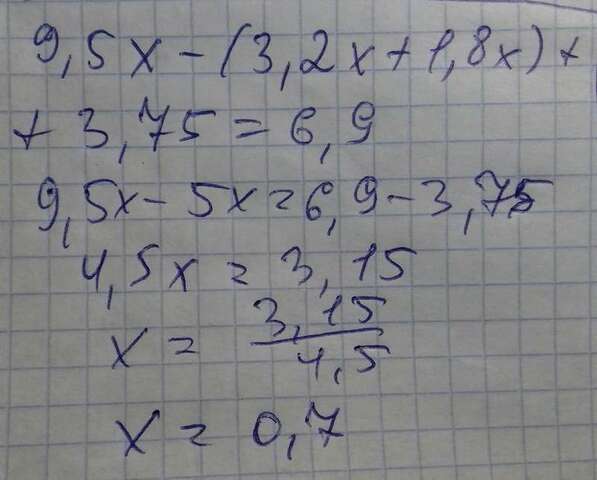 9,5x - (3,2x + 1,8x) +
+ 3,75 = 6,9
9,5x - 5x = 6,9 - 3,75
4,5x = 3,15
x = 3,15 / 4,5
x = 0,7